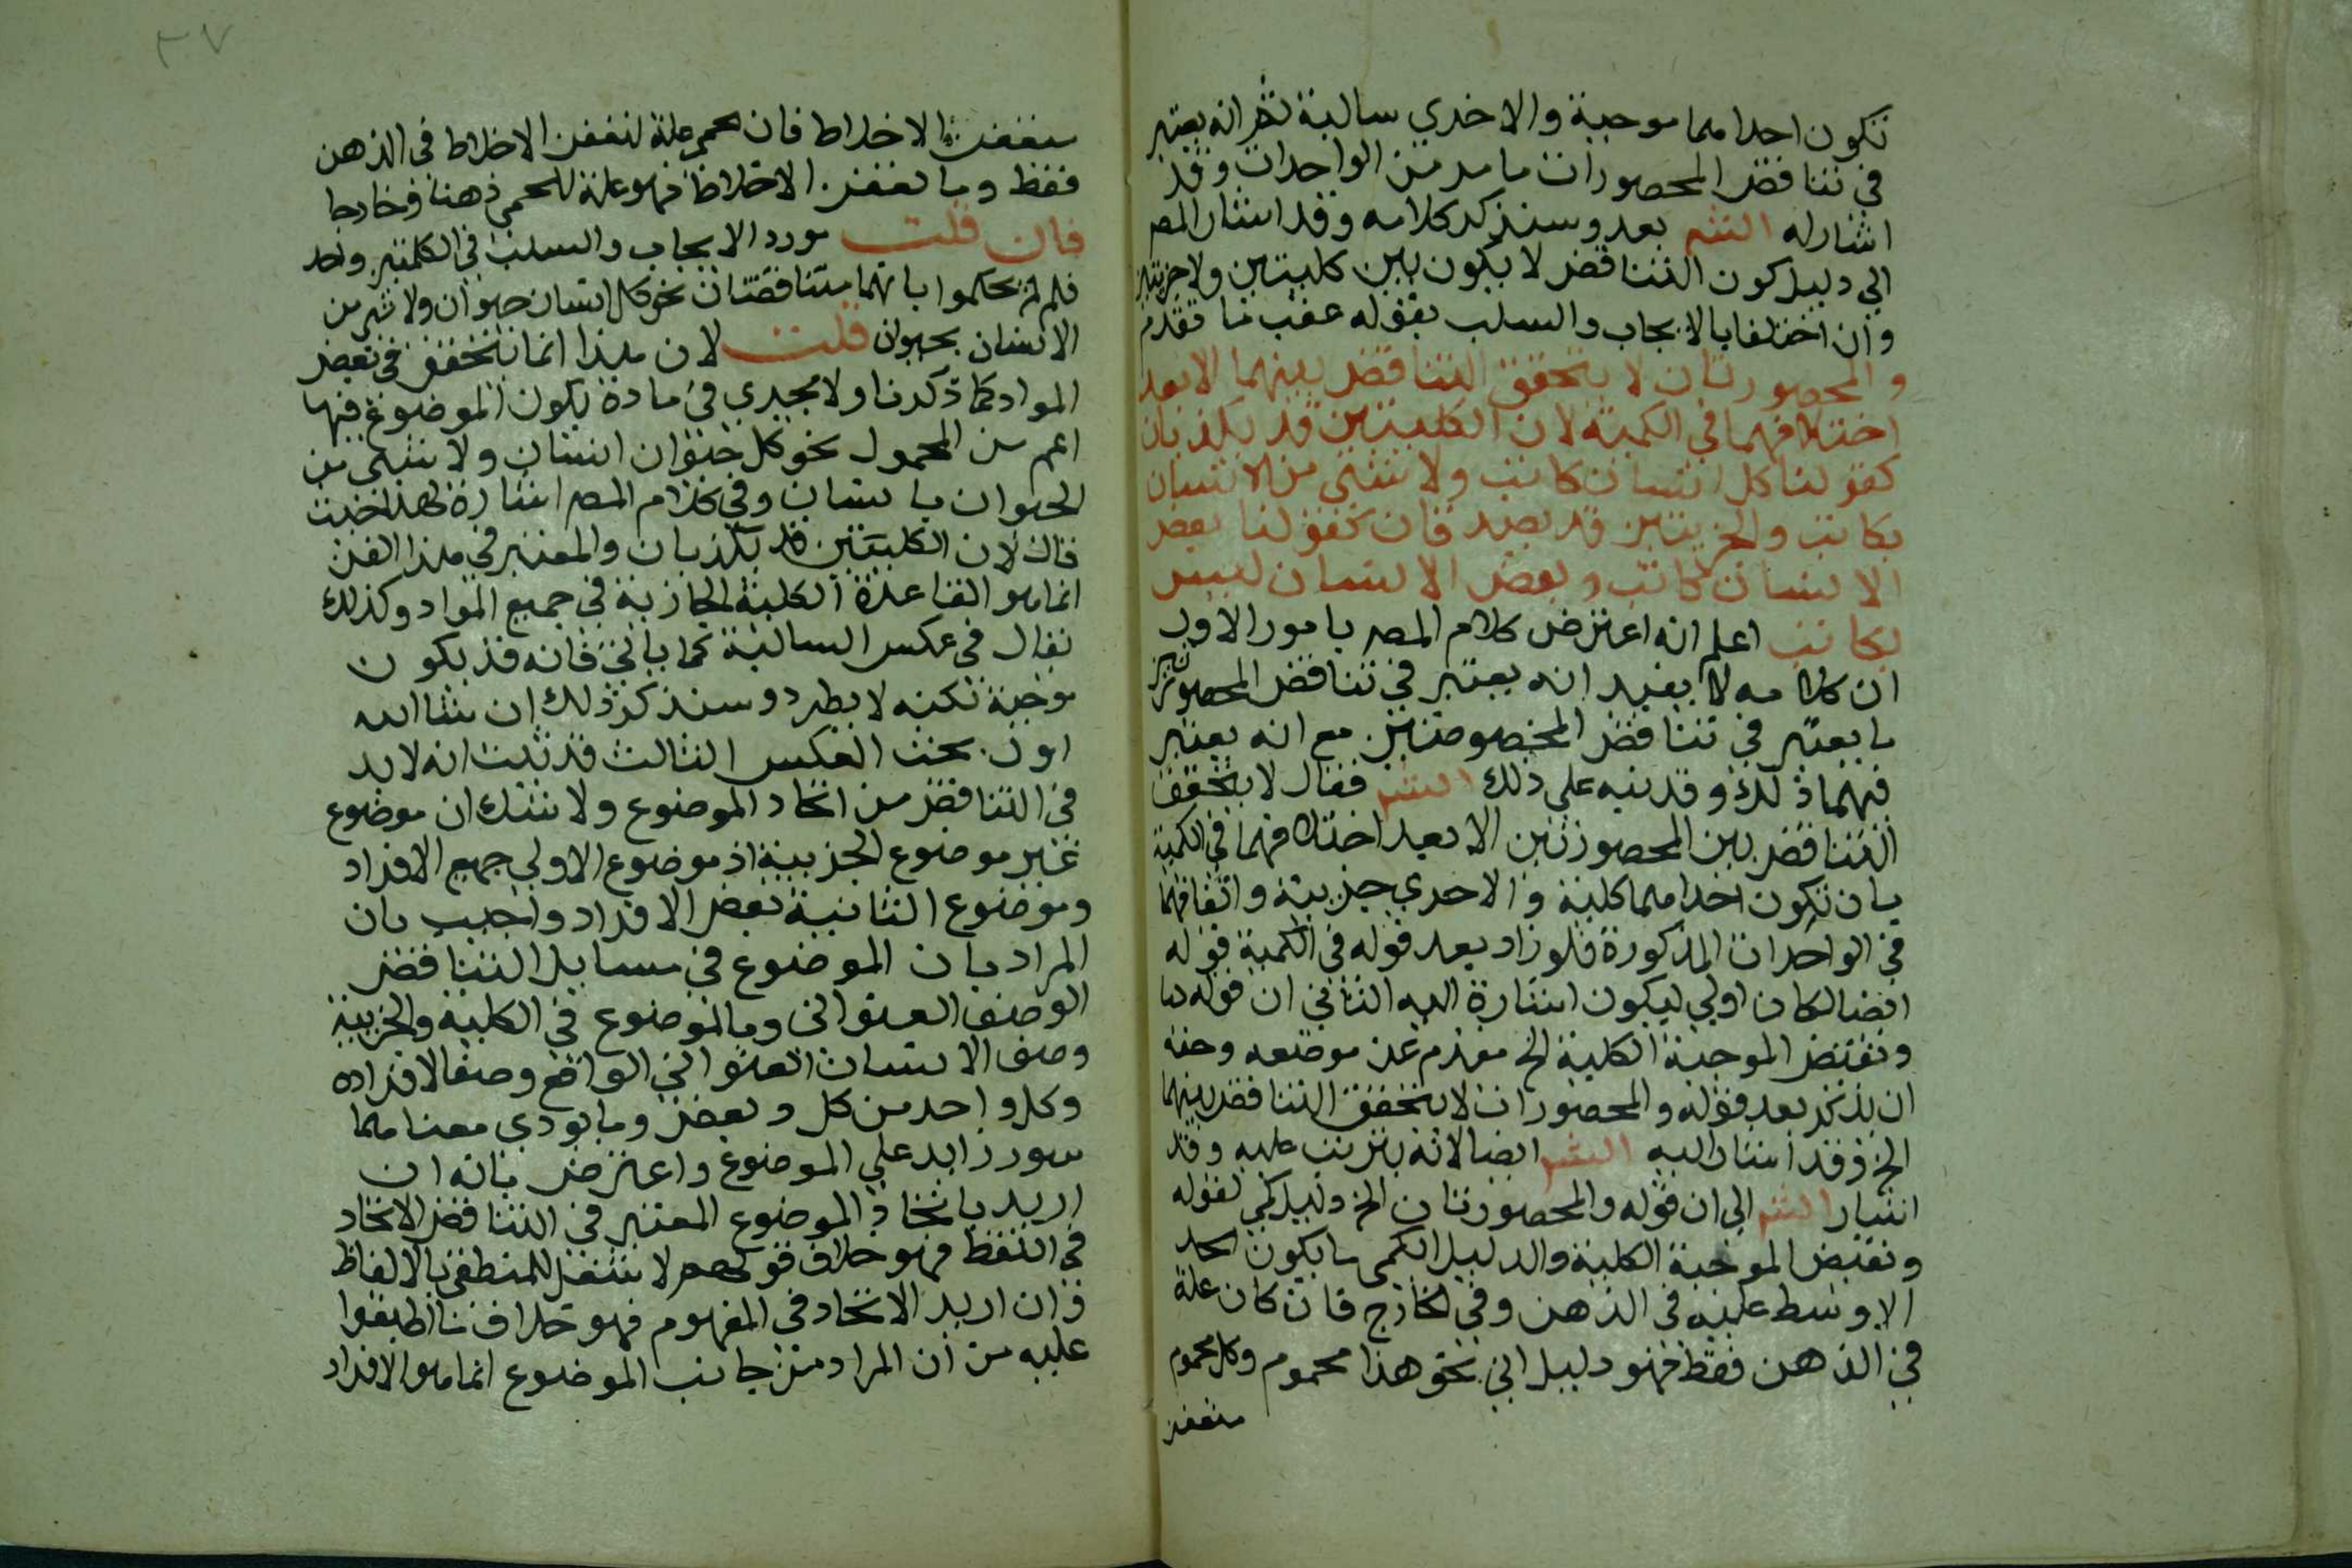 تكون احداهما موجبة والاخري سالبة ثم انه يعتبر
في تناقض المحصورات ما مر من الواحدات وقد
اشار له الش بعد وسنذكر كلامه وقد اشار المص
الي دليل كون التناقض لا يكون بين كليتين ولا جزيتين
وان اختلفا بالايجاب والسلب بقوله عقب ما تقدم
والمحصورتان لا يتحقق التناقض بينهما الا بعد
اختلافهما في الكمية لان الكليتين قد يكذبان
كقولنا كل انسان كاتب ولا شيئ من الانسان
بكاتب والجزيتين قد يصدقان كقولنا بعض
الانسان كاتب وبعض الانسان ليس
بكاتب اعلم انه اعترض كلام المص بامور الاول
ان كلامه لا يفيد انه يعتبر في تناقض المحصورتين
ما يعتبر في تناقض المخصوصتين مع انه يعتبر
فيهما ذلك وقد نبه علي ذلك الش فقال لا يتحقق
التناقض بين المحصورتين الا بعد اختلافهما في الكمية
بان تكون احداهما كلية والاخري جزيية واتفاقهما
في الواحدات المذكورة فلو زاد بعد قوله في الكمية قوله
ايضا لكان اولي ليكون اشارة اليه الثاني ان قوله
ونقيض الموجبة الكلية الخ مقدم عن موضعه وحقه
ان يذكر بعد قوله والمحصورات لا يتحقق التناقض بينهما
الخ وقد اشار اليه الش ايضا لانه يترتب عليه وقد
اشار الش الي ان قوله والمحصورتان الخ دليل لمي لقوله
ونقيض الموجبة الكلية والدليل اللمي ما يكون الحد
الاوسط علته في الذهن وفي الخارج فان كان علة
في الذهن فقط فهو دليل اني نحو هذا محموم وكل محموم
متعفن
٣٧
متعفن الاخلاط فان الحمى علة لتعفن الاخلاط في الذهن
فقط وما تعفن الاخلاط فهو علة للحمى ذهنا وخارجا
فان قلت مورد الايجاب والسلب في الكلمتين واحد
فلم لم يحكموا بانهما متناقضتان نحو كل انسان حيوان ولا شي من
الانسان بحيوان قلت لان هذا انما يتحقق في بعض
المواد كما ذكرنا ولا يجري في مادة يكون الموضوع فيها
اعم من المحمول نحو كل حيوان انسان ولا شيئ من
الحيوان بانسان وفي كلام المص اشارة لهذا حيث
قال لان الكليتين قد يكذبان والمعتبر في هذا الفن
انما هو القاعدة الكلية الجارية في جميع المواد وكذلك
يقال في عكس السالبة كما ياتي فانه قد يكون
موجبة لكنه لا يطرد وسنذكر ذلك ان شا الله
اول بحث العكس الثالث قد ثبت انه لا بد
في التناقض من اتحاد الموضوع ولا شك ان موضوع
غير موضوع الجزيية اذ موضوع الاولي جميع الافراد
وموضوع الثانية بعض الافراد واجيب بان
المراد بان الموضوع في مسايل التناقض
الوصف العنواني وما الموضوع في الكلية والجزيية
وصف الانسان العنواني الواقع وصفا لافراده
وكل واحد من كل وبعض وما يودي معناهما
سور زايد علي الموضوع واعترض بانه ان
اريد باتحاد الموضوع المعتبر في التناقض الاتحاد
في اللفظ فهو خلاف قولهم لا شغل للمنطقي بالالفاظ
وان اريد الاتحاد في المفهوم فهو خلاف ما اطبقوا
عليه من ان المراد من جانب الموضوع انما هو الافراد